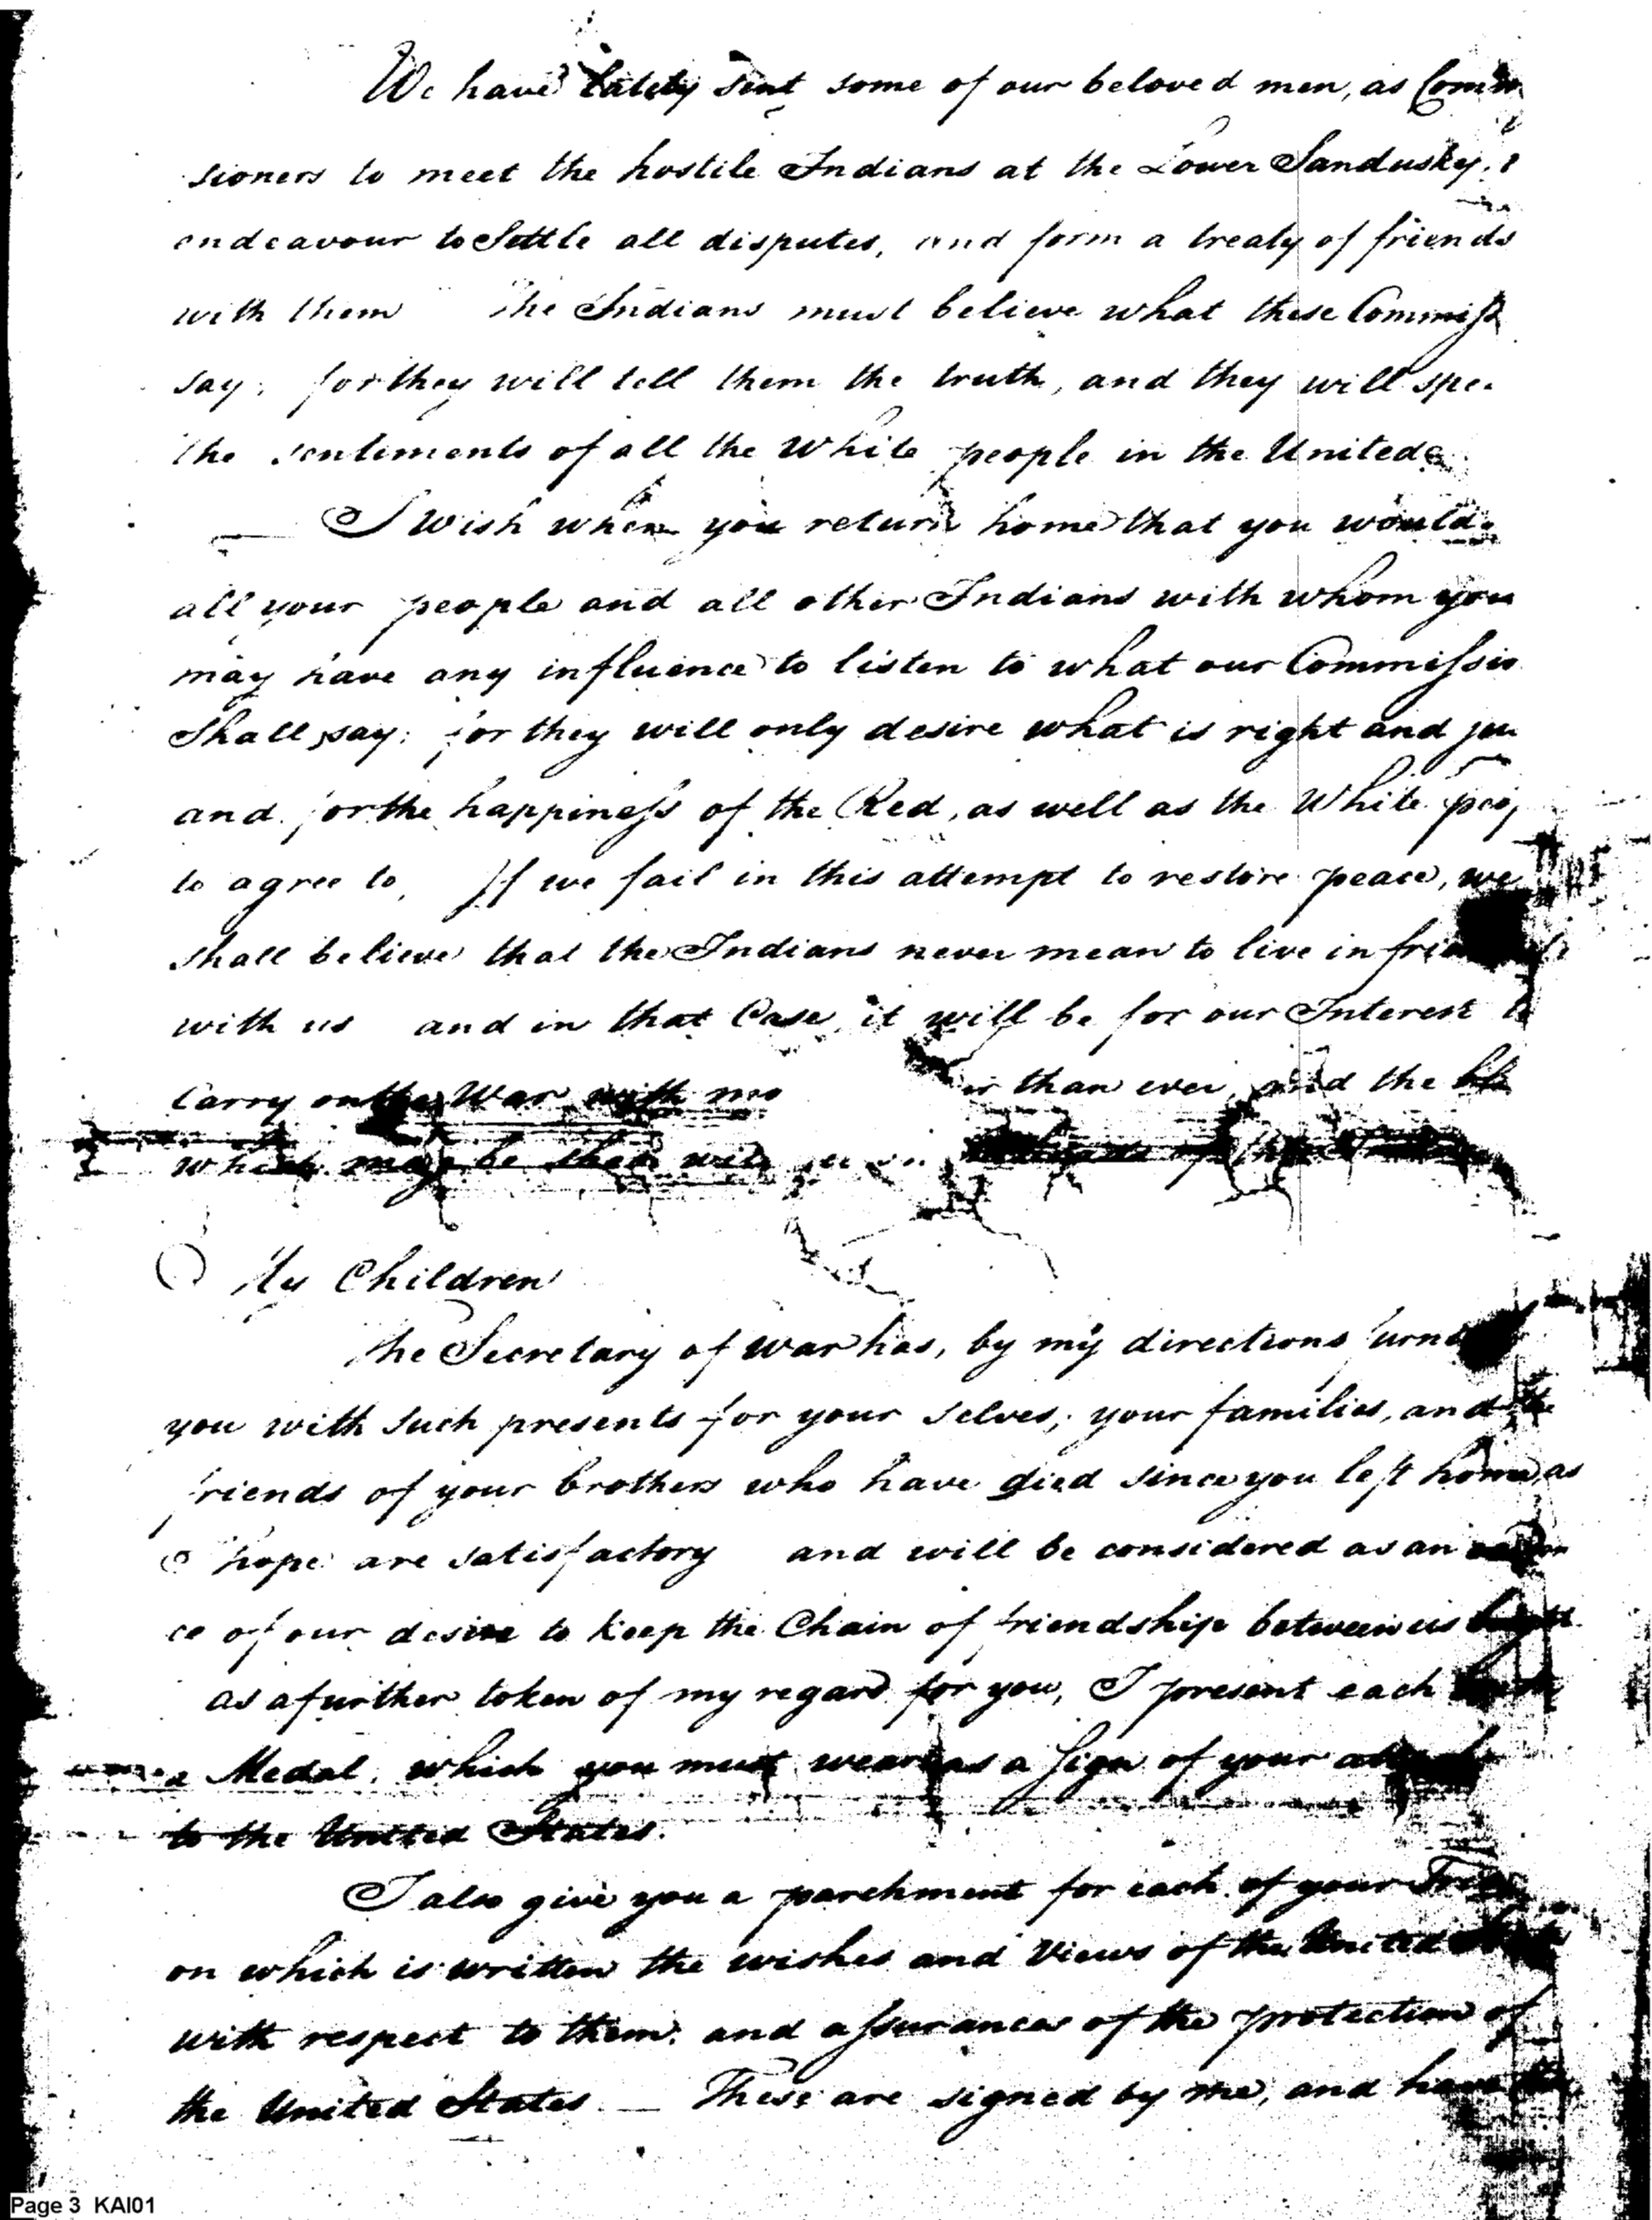 We have lately sent some of our beloved men, as Comm
sioners to meet the hostile Indians at the Lower Sandusky,
endeavour to Settle all disputes, and form a treaty of friends
with them The Indians must believe what these Commiss
say; for they will tell them the truth, and they will spea
the sentiments of all the White people in the United
I wish when you return home that you would
all your people and all other Indians with whom you
may have any influence to listen to what our Commissio
Shall say; for they will only desire what is right and jus
and for the happiness of the Red, as well as the White peop
to agree to, If we fail in this attempt to restore peace, we
shall believe that the Indians never mean to live in frie
with us and in that Case, it will be for our Interest to
Carry on the War with mo than ever, and the blo
which may be shed will of the
My Children
The Secretary of war has, by my directions furn
you with such presents for your selves, your families, and the
friends of your brothers who have died since you left home, as
I hope are satisfactory and will be considered as an
ce of our desire to keep the Chain of friendship between us bright
as a further token of my regard for you, I present each
a Medal, which you must wear as a sign of your
to the United States.
I also give you a parchment for each of your
on which is written the wishes and Views of the United
with respect to them, and assurances of the protection of
the United States. — These are signed by me, and have
Page 3 KAI01